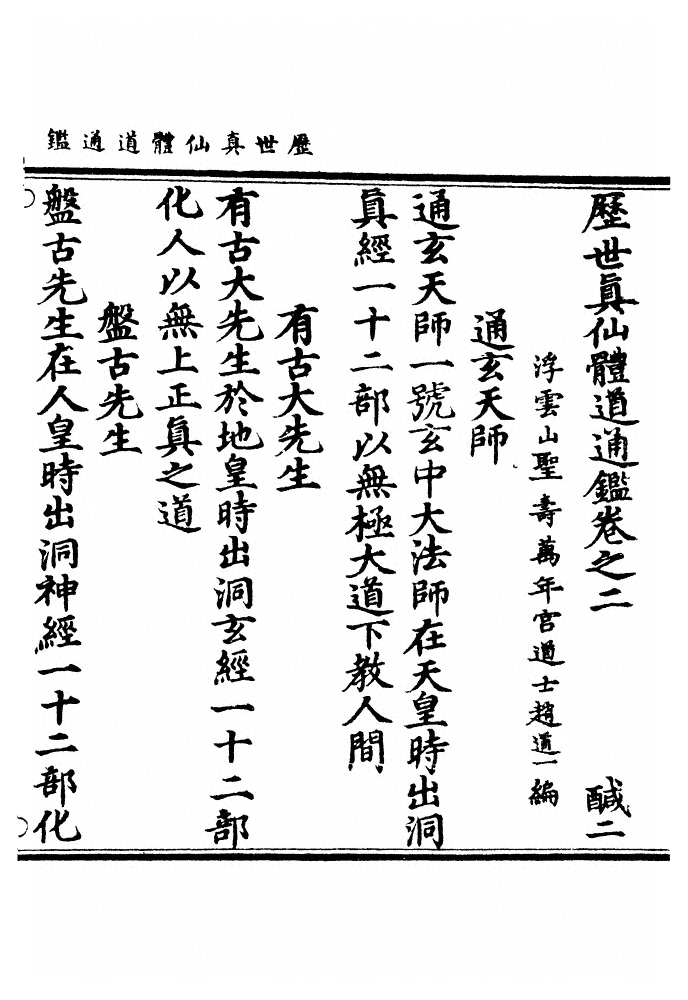 歷世真仙體道通鑑
歷世真仙體道通鑑卷之二 醎二
浮雲山聖壽萬年宮道士趙道一編
通玄天師
通玄天師一號玄中大法師在天皇時出洞
真經一十二部以無極大道下教人間
有古大先生
有古大先生於地皇時出洞玄經一十二部
化人以無上正真之道
盤古先生
盤古先生在人皇時出洞神經一十二部化